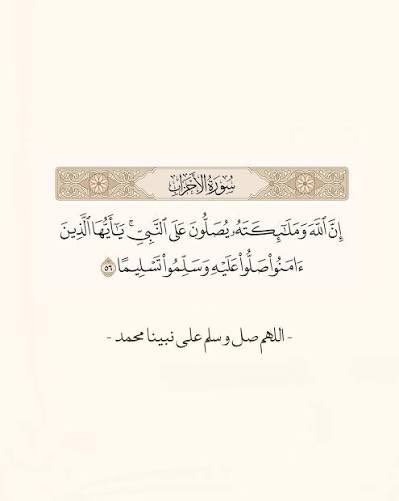 سُورَةُ الأَحْزَابِ
إِنَّ ٱللَّهَ وَمَلَـٰٓئِكَتَهُۥ يُصَلُّونَ عَلَى ٱلنَّبِىِّ ۚ يَـٰٓأَيُّهَا ٱلَّذِينَ
ءَامَنُوا۟ صَلُّوا۟ عَلَيْهِ وَسَلِّمُوا۟ تَسْلِيمًا ٥٦
- اللهم صل وسلم على نبينا محمد -